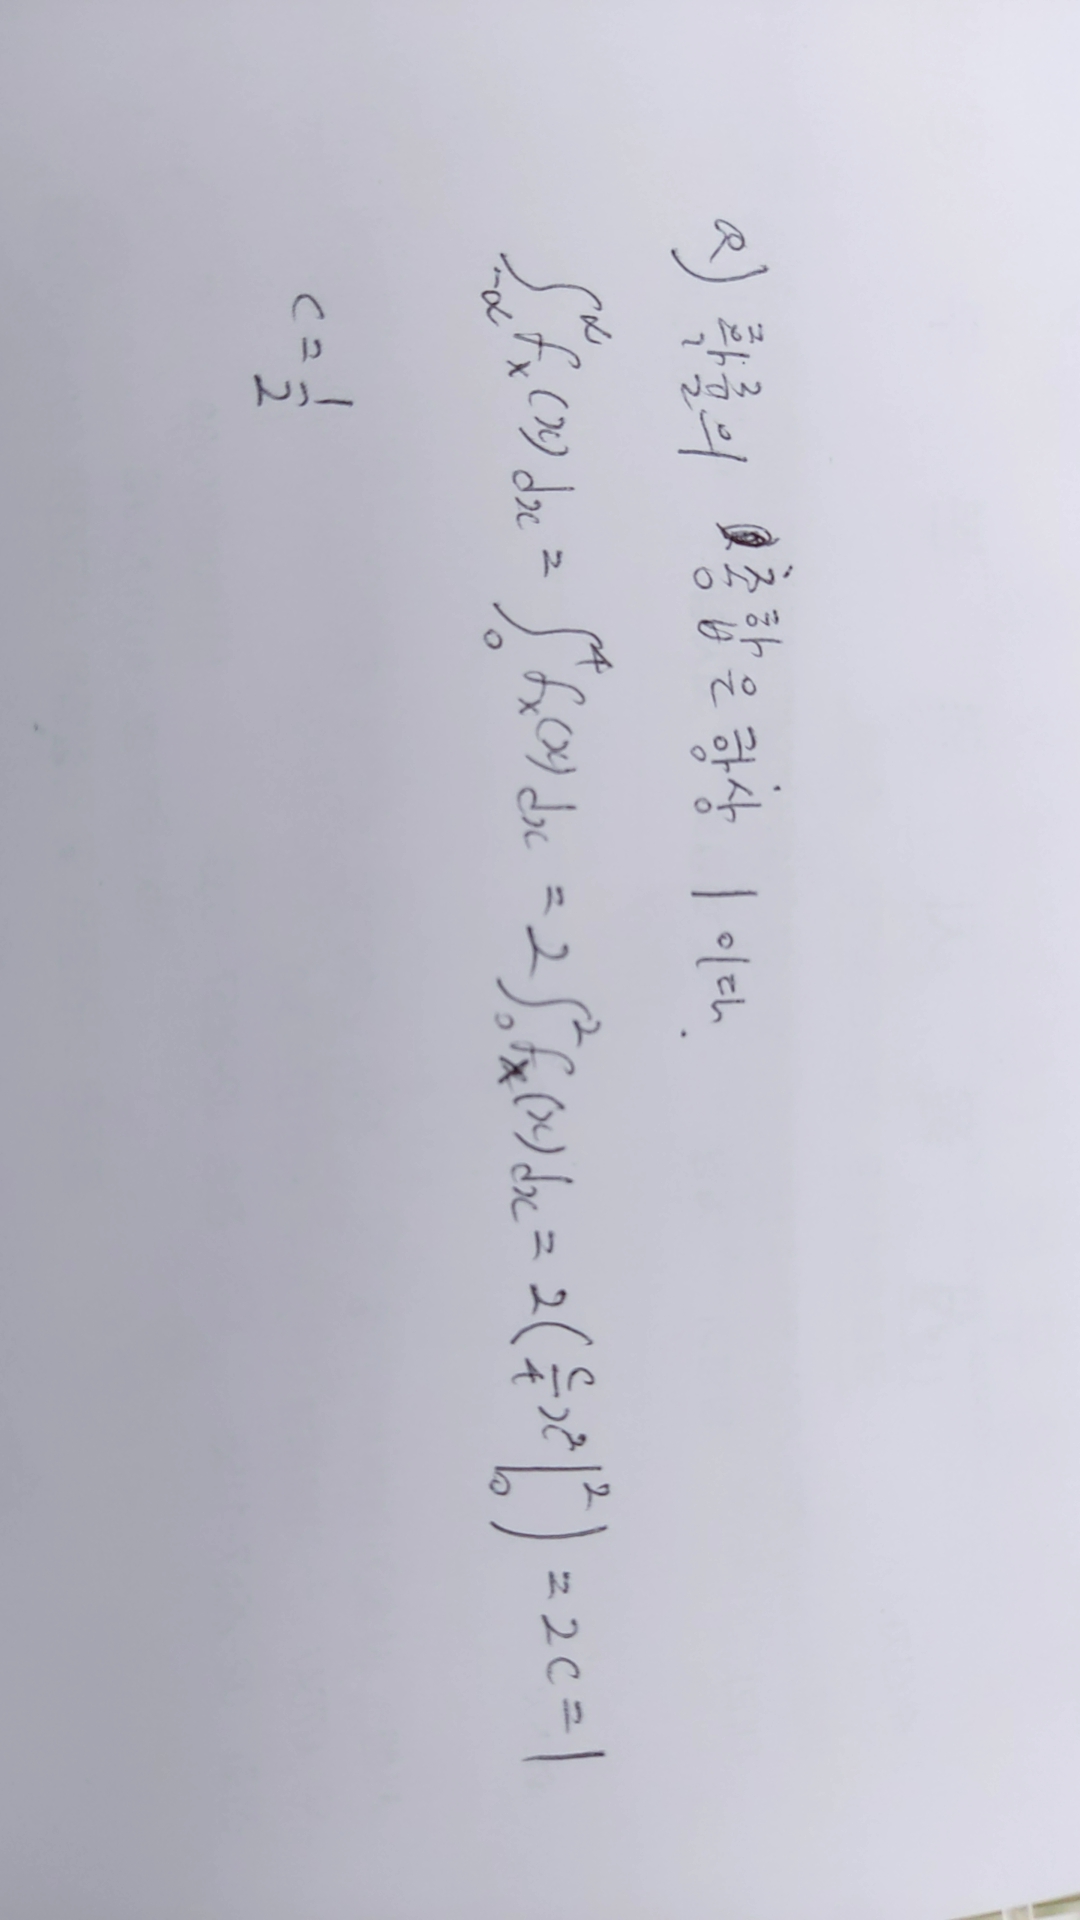 a) 확률의 총합은 항상 1 이다.
∫_{-∞}^{∞} f_x(x) dx = ∫_0^4 f_x(x) dx = 2∫_0^2 f_x(x) dx = 2(c/4 x²|_0^2) = 2c = 1
c = 1/2